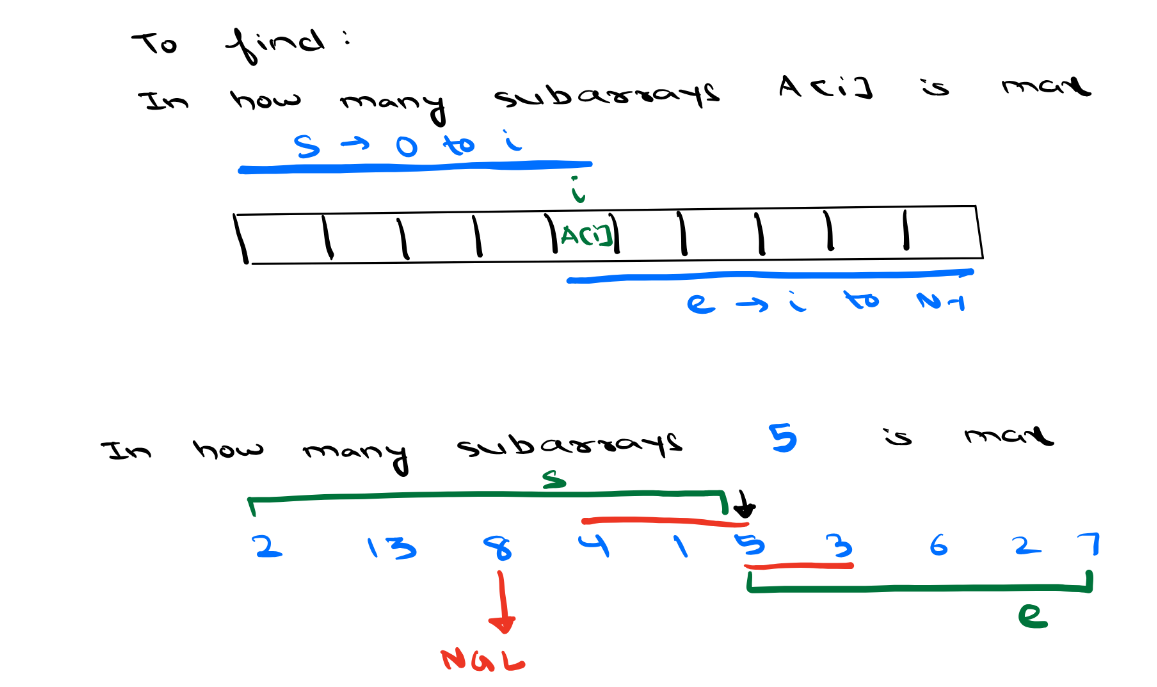 To find :
In how many subarrays A[i] is max
S → 0 to i
i
A[i]
e → i to N-1
In how many subarrays 5 is max
S
2 13 8 4 1 5 3 6 2 7
e
NGL